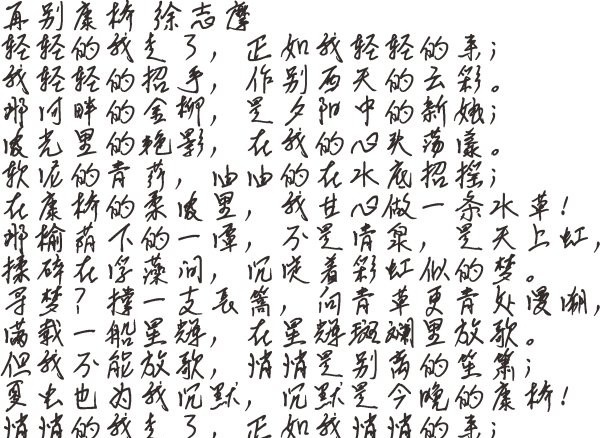 再别康桥 徐志摩
轻轻的我走了，正如我轻轻的来；
我轻轻的招手，作别西天的云彩。
那河畔的金柳，是夕阳中的新娘；
波光里的艳影，在我的心头荡漾。
软泥的青荇，油油的在水底招摇；
在康桥的柔波里，我甘心做一条水草！
那榆荫下的一潭，不是清泉，是天上虹，
揉碎在浮藻间，沉淀着彩虹似的梦。
寻梦？撑一支长篙，向青草更青处漫溯，
满载一船星辉，在星辉斑斓里放歌。
但我不能放歌，悄悄是别离的笙箫；
夏虫也为我沉默，沉默是今晚的康桥！
悄悄的我走了，正如我悄悄的来；